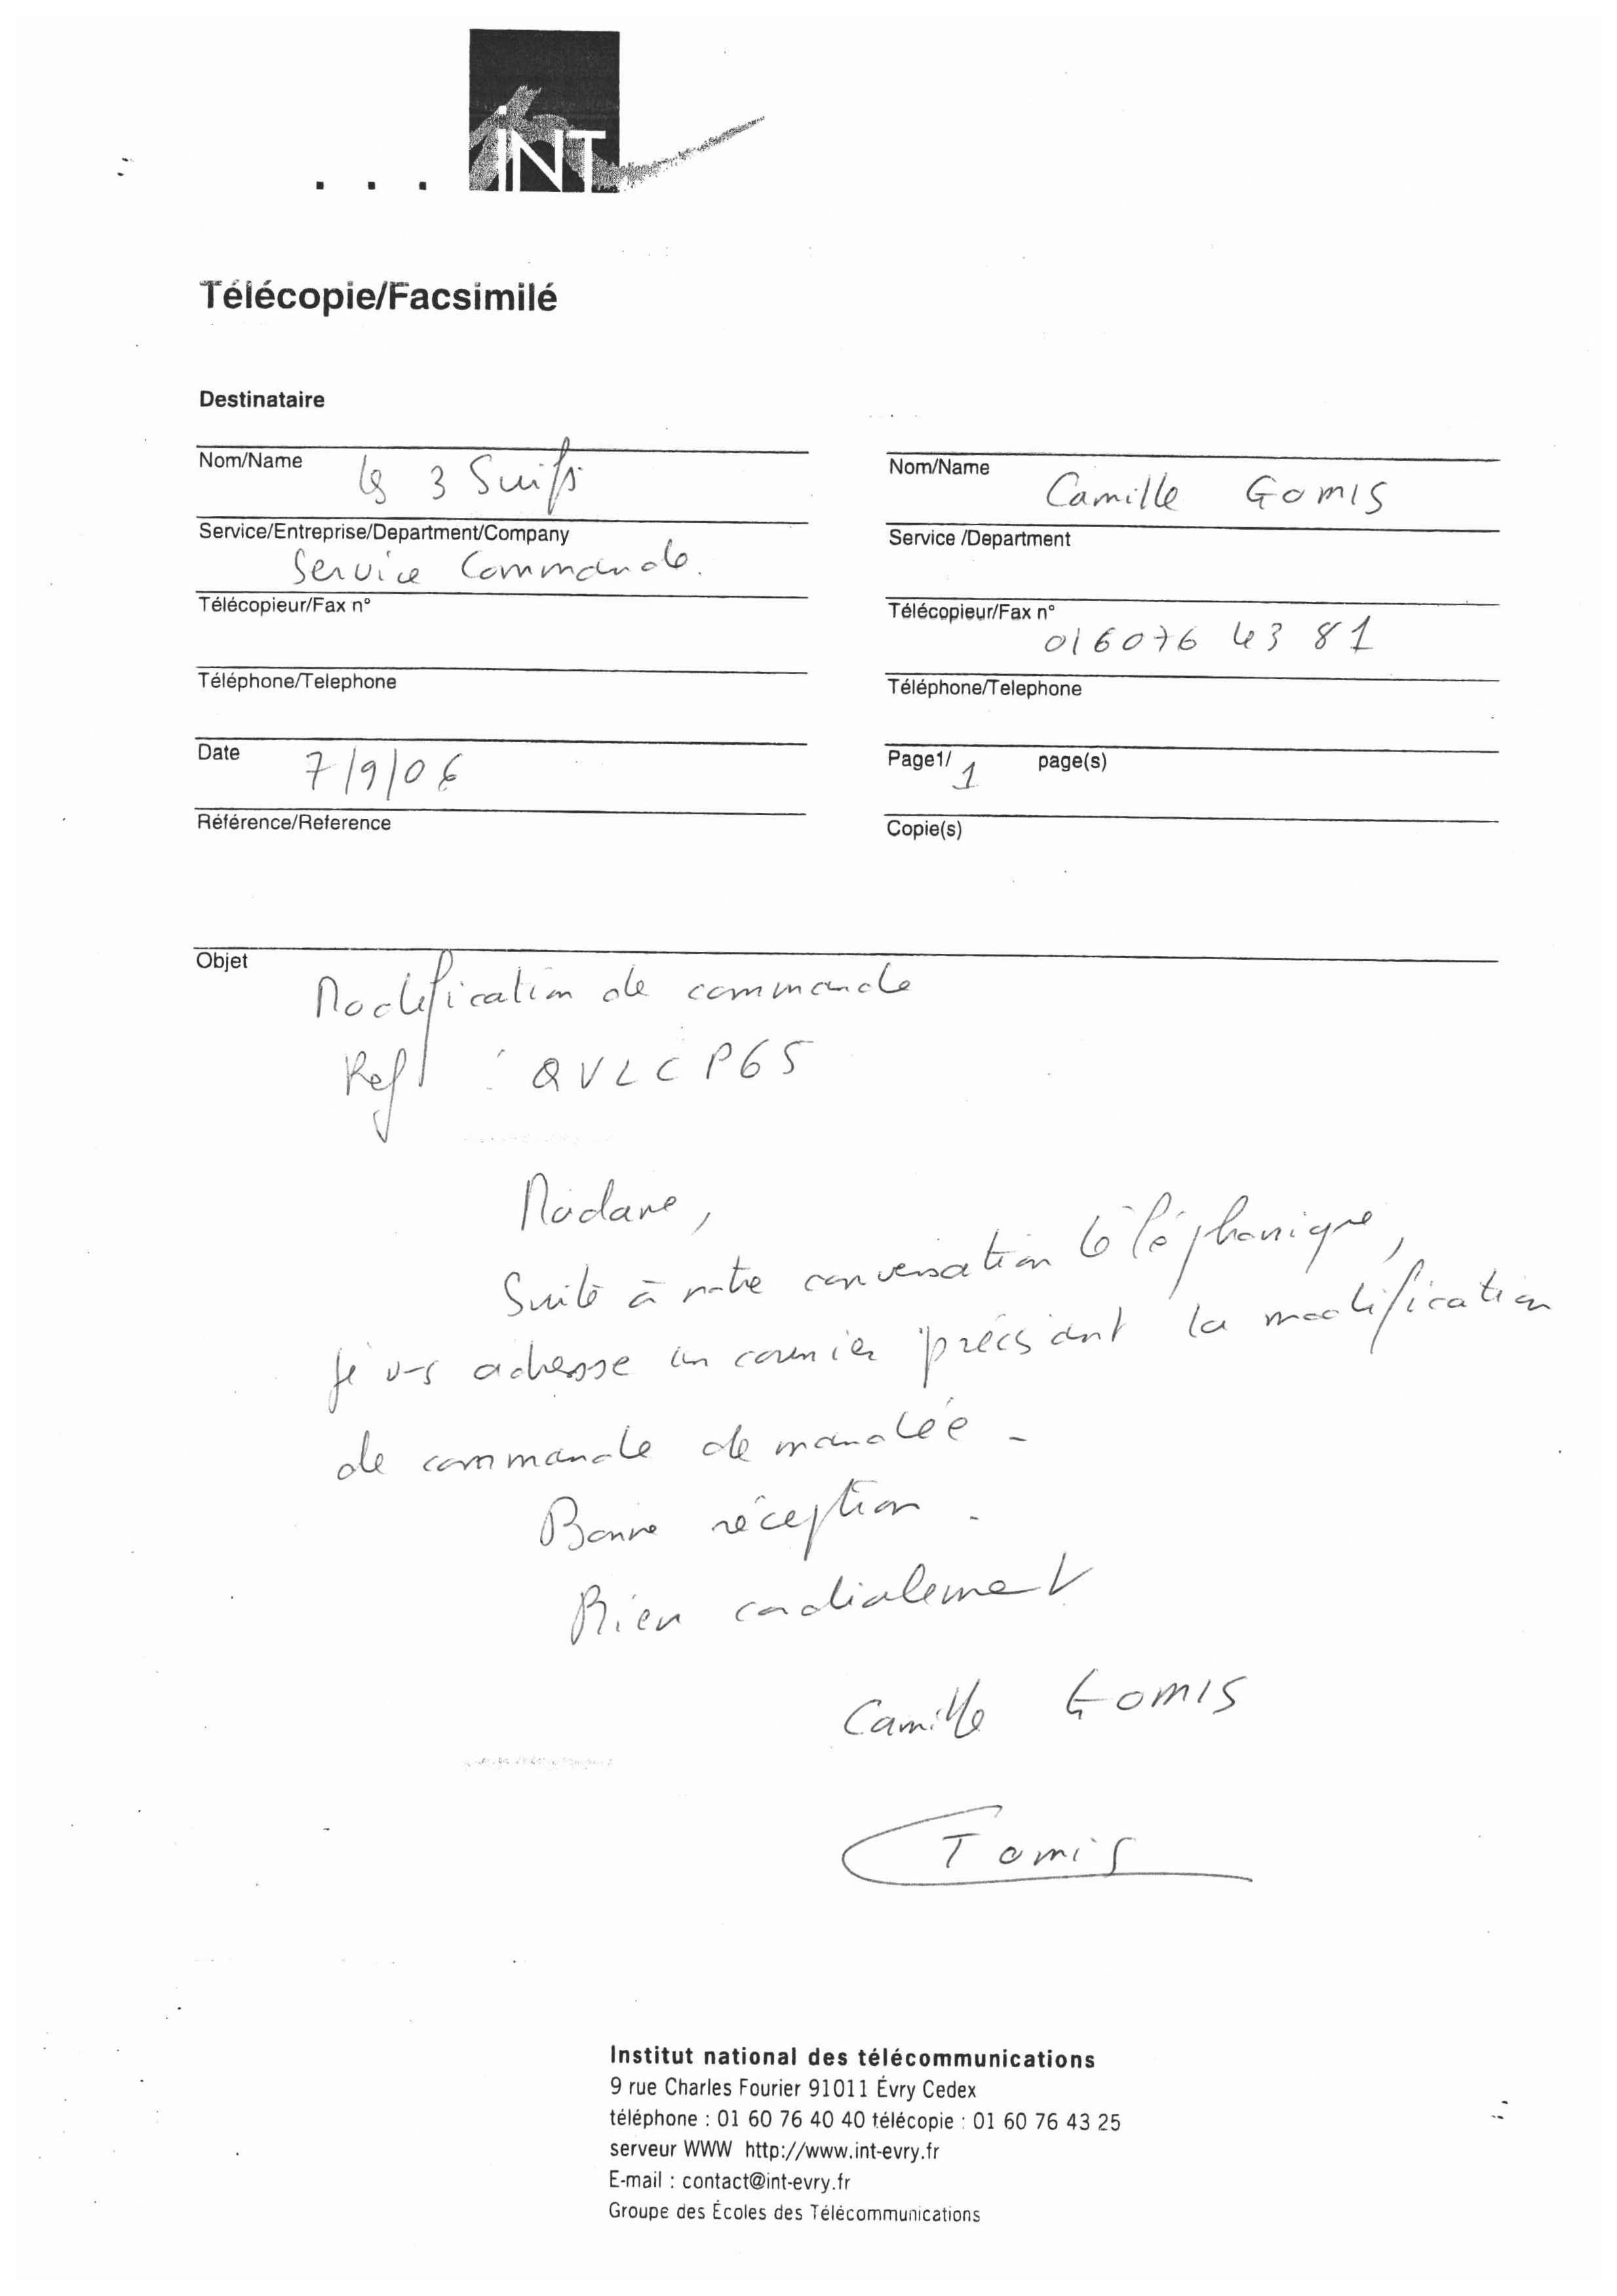 INT
Télécopie/Facsimilé
Destinataire
Nom/Name les 3 Suisses
Service/Entreprise/Department/Company
Service Commande.
Télécopieur/Fax n°
Téléphone/Telephone
Date 7/9/06
Référence/Reference
Nom/Name Camille GOMIS
Service /Department
Télécopieur/Fax n°
016076 43 81
Téléphone/Telephone
Page1/ 1 page(s)
Copie(s)
Objet
Modification de commande
Ref : QVLCP65
Madame,
Suite à notre conversation téléphonique,
je vs adresse un courrier précisant la modification
de commande demandée -
Bonne réception.
Bien cordialement
Camille GOMIS
Gomis
Institut national des télécommunications
9 rue Charles Fourier 91011 Évry Cedex
téléphone : 01 60 76 40 40 télécopie : 01 60 76 43 25
serveur WWW http://www.int-evry.fr
E-mail : contact@int-evry.fr
Groupe des Écoles des Télécommunications